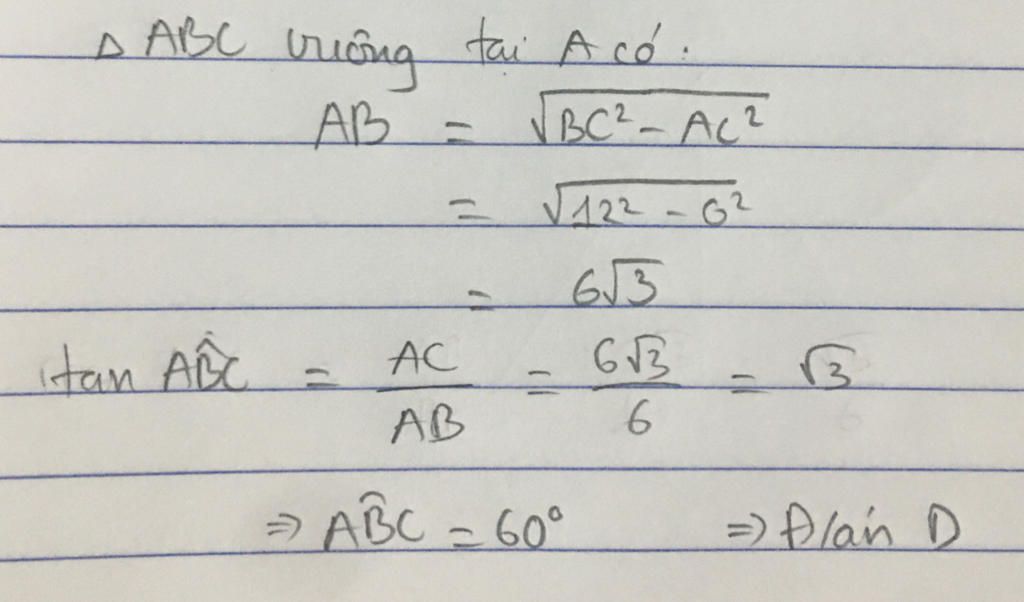 Δ ABC vuông tại A có:
AB = √(BC² - AC²)
= √(12² - 6²)
= 6√3
tan AB̂C = AC/AB = 6√3/6 = √3
⇒ AB̂C = 60° ⇒ Đ/án D